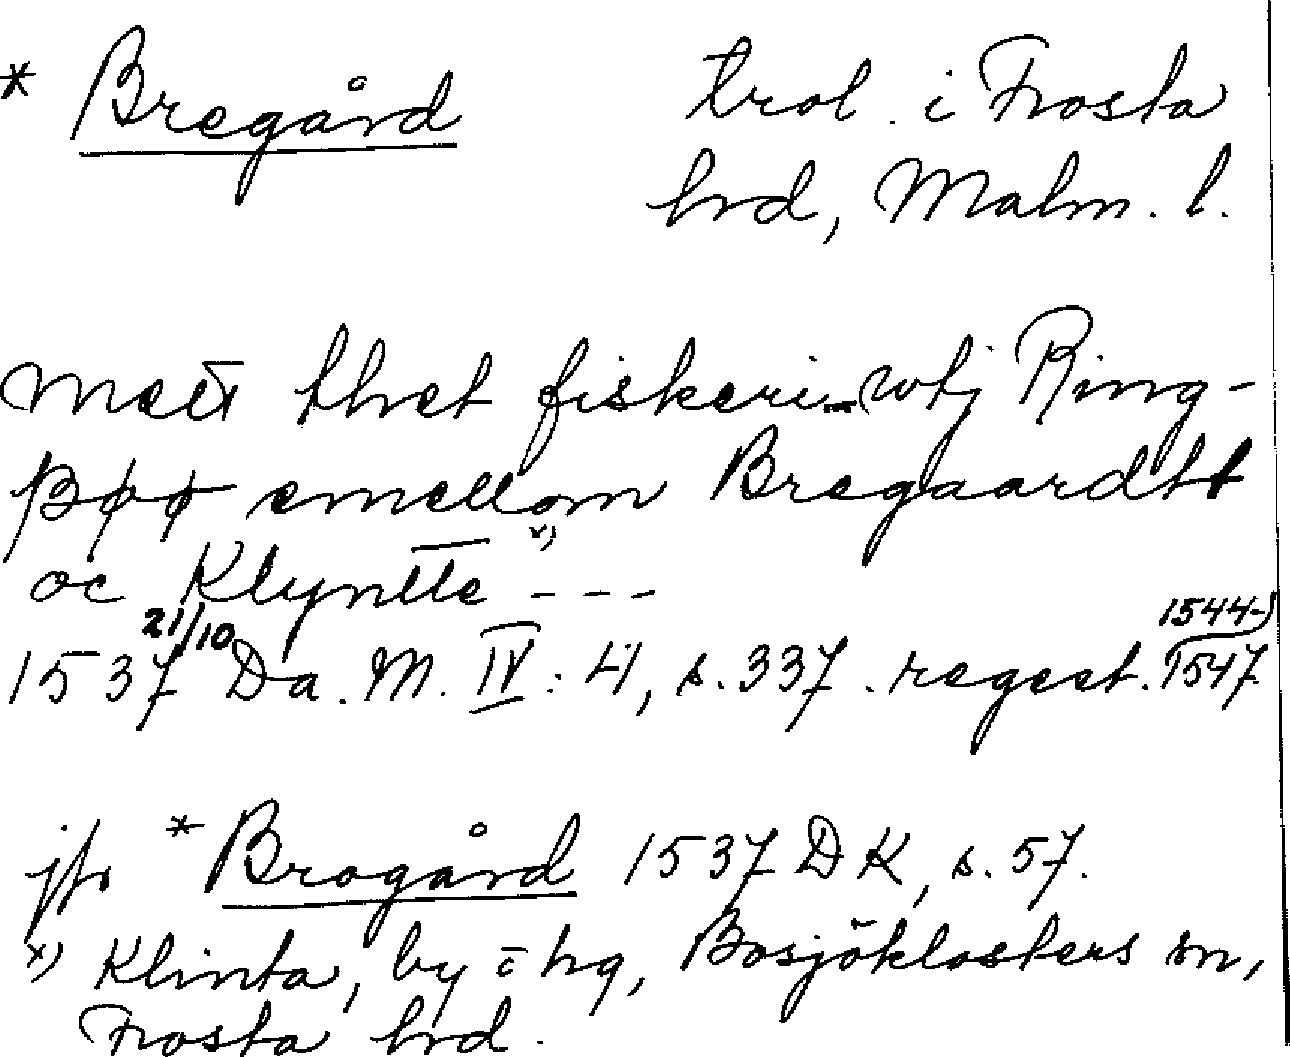 * Bregård trol. i Frosta
hrd, Malm. l.
mett thet fiskeri wtj Ring-
ßøø emellom Bregaardtt
oc Klyntte x) - - -
1537 21/10 Da. M. IV: 4, s. 337. regest. 1544-1547
jfr *Brogård 1537 DK, s. 57.
x) Klinta, by o hg, Bosjöklosters sn,
Frosta hrd.